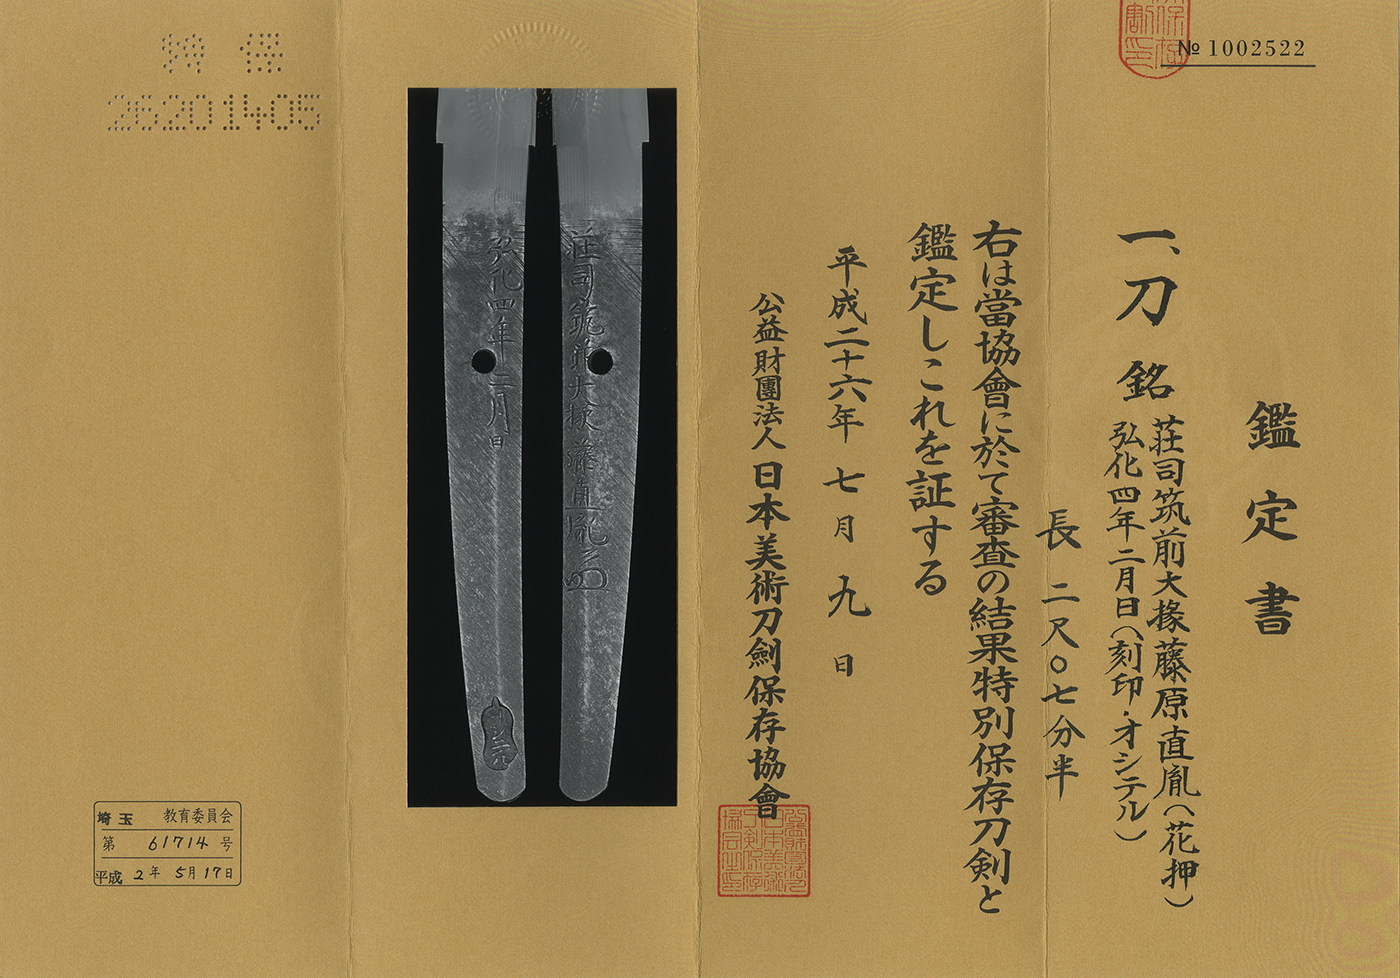 № 1002522
鑑定書
一、刀 銘 荘司筑前大掾藤原直胤（花押）
弘化四年二月日（刻印・オシテル）
長 二尺〇七分半
右は當協會に於て審査の結果特別保存刀剣と
鑑定しこれを証する
平成二十六年 七月 九日
公益財團法人 日本美術刀劍保存協會
荘司筑前大掾藤直胤
弘化四年二月日
特 保
26201405
埼玉 教育委員会
第 61714 号
平成 2年 5月17日